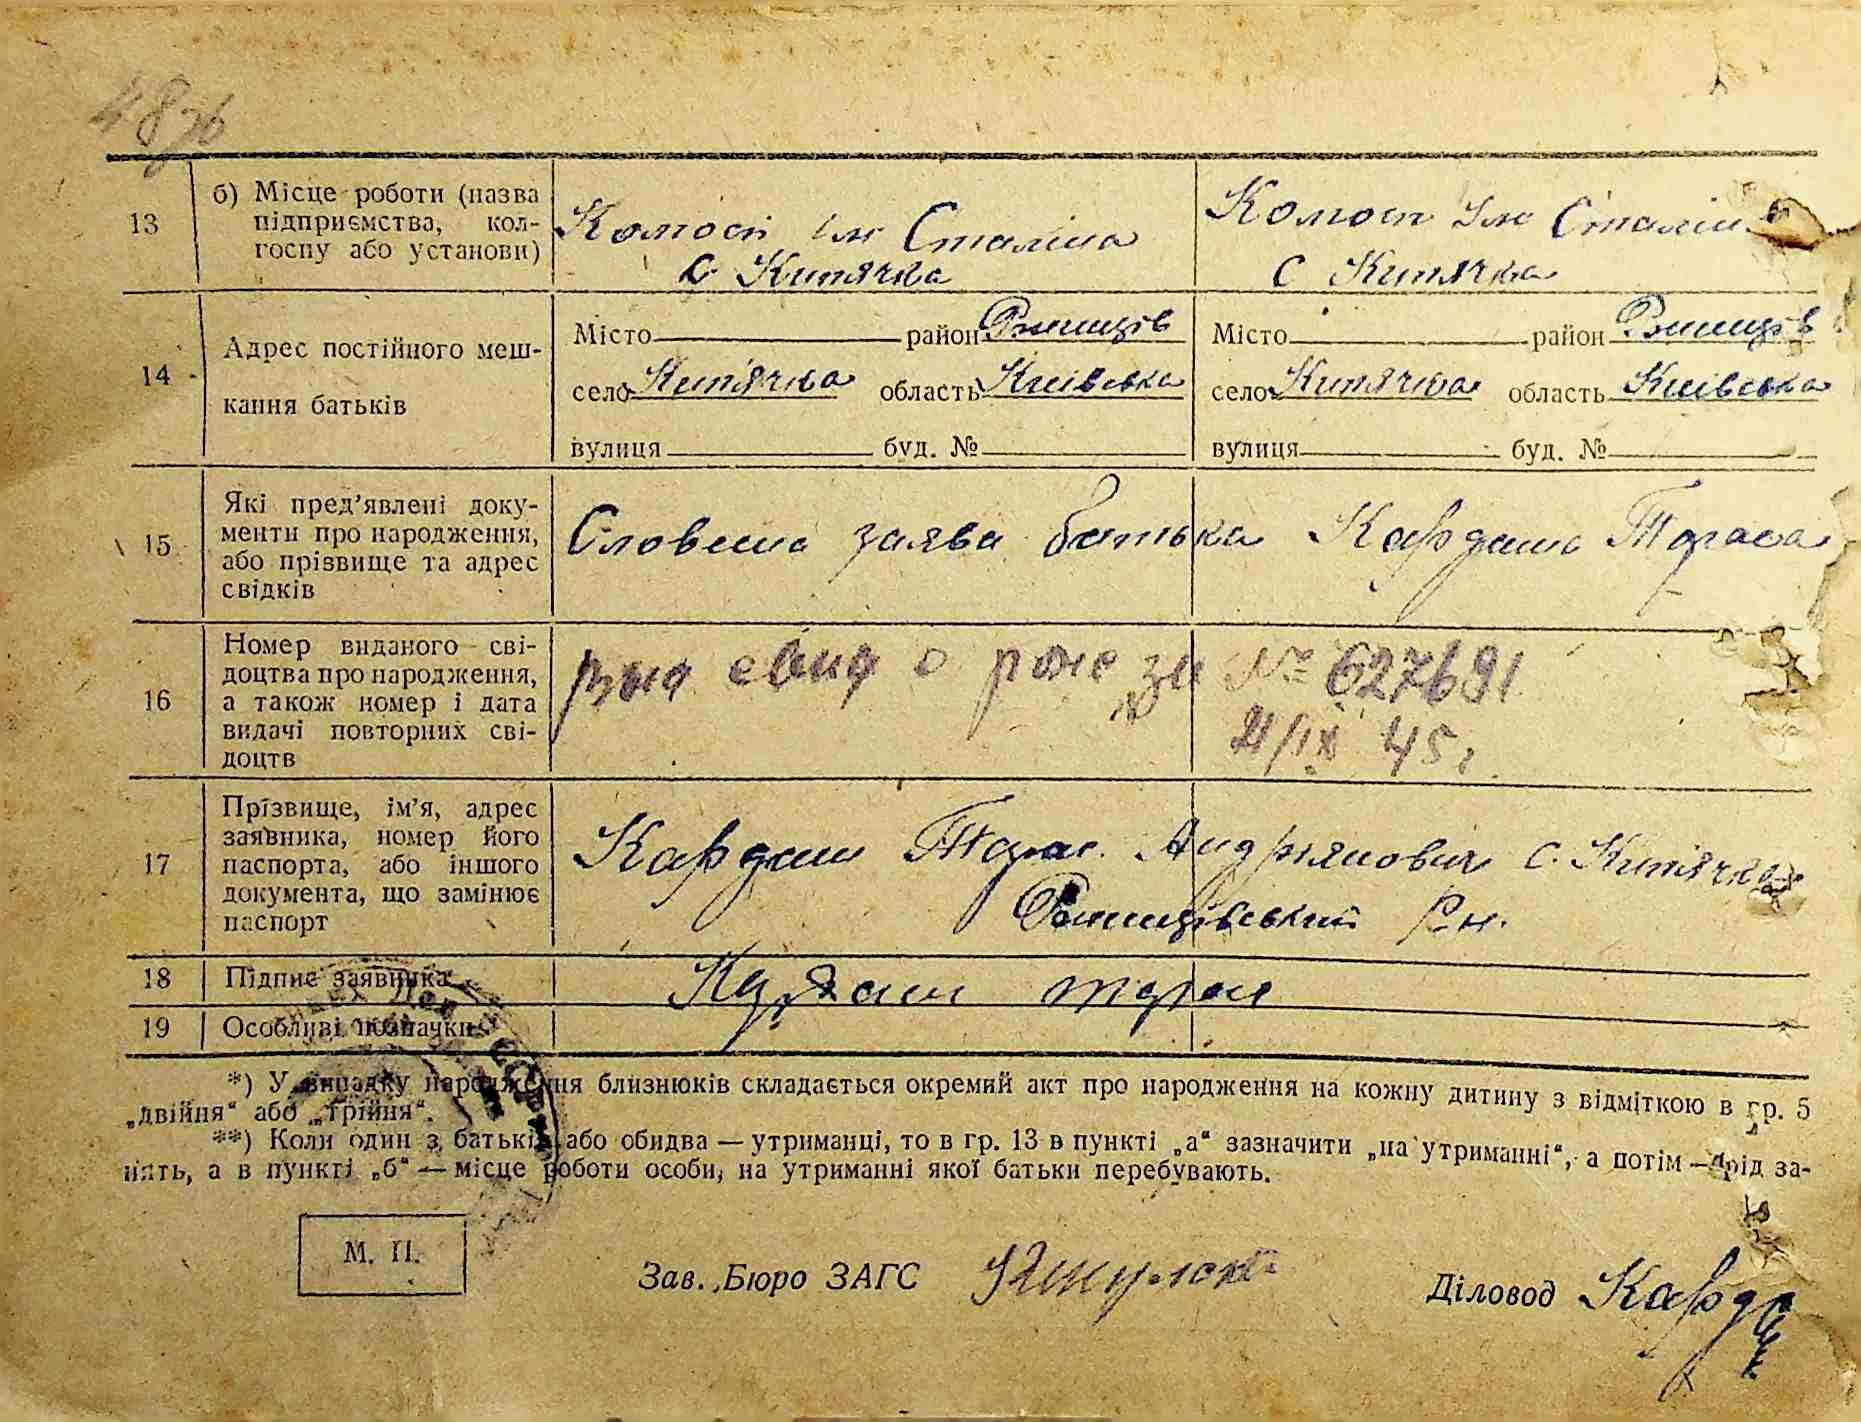 48
13 б) Місце роботи (назва
підприємства, кол-
госпу або установи)
Колгосп ім Сталіна
с Кип'ячка
Колгосп Ім Сталін
с Кип'ячка
14 Адрес постійного меш-
кання батьків
Місто район Ржищів
село Кип'ячка область Київська
вулиця буд. №
Місто район Ржищів
село Кип'ячка область Київська
вулиця буд. №
15 Які пред'явлені доку-
менти про народження,
або прізвище та адрес
свідків
Словесна заява батька Кардаша Тараса
16 Номер виданого сві-
доцтва про народження,
а також номер і дата
видачі повторних сві-
доцтв
свид о рож за № 627691
21/IX 45 г
17 Прізвище, ім'я, адрес
заявника, номер його
паспорта, або іншого
документа, що замінює
паспорт
Кардаш Тарас Андріянович с. Кип'ячка
Ржищівський Рн.
18 Підпис заявника
Кардаш тарас
19 Особливі позначки
*) У випадку народження близнюків складається окремий акт про народження на кожну дитину з відміткою в гр. 5
„двійня“ або „трійня“.
**) Коли один з батьків або обидва — утриманці, то в гр. 13 в пункті „а“ зазначити „на утриманні“, а потім — рід за-
нять, а в пункті „б“ — місце роботи особи, на утриманні якої батьки перебувають.
М. П.
Зав. Бюро ЗАГС
Діловод Кардаш